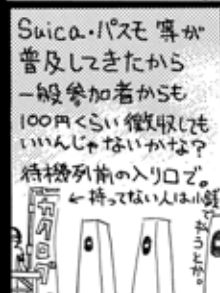 Suica・パスモ等が
普及してきたから
一般参加者からも
100円くらい徴収しても
いいんじゃないかな?
待機列前の入り口で。
←持ってない人は小銭で払うとか。
カタログ